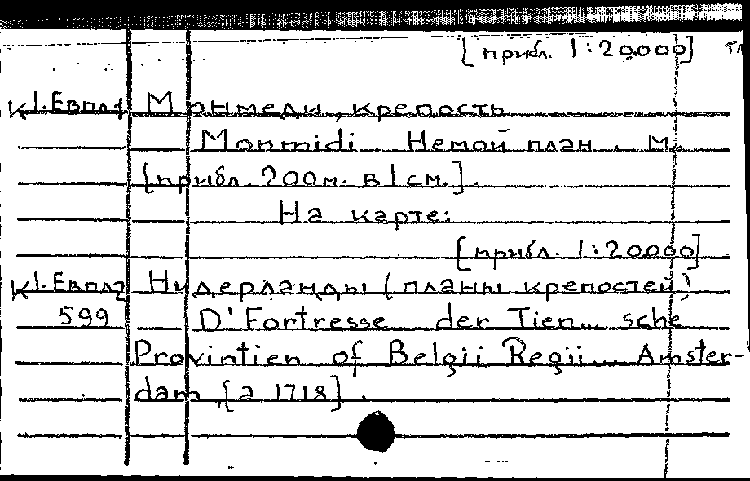 [прибл. 1:20000]
К1.Евпл1 Монмеди, крепость
Monmidi. Немой план. М.
[прибл. 200м. в 1 см.].
На карте:
[прибл. 1:20000]
К1.Евпл2 Нидерланды (планы крепостей)
599 D'Fortresse der Tien... sche
Provintien of Belgii Regii... Amster-
dam [a 1718].